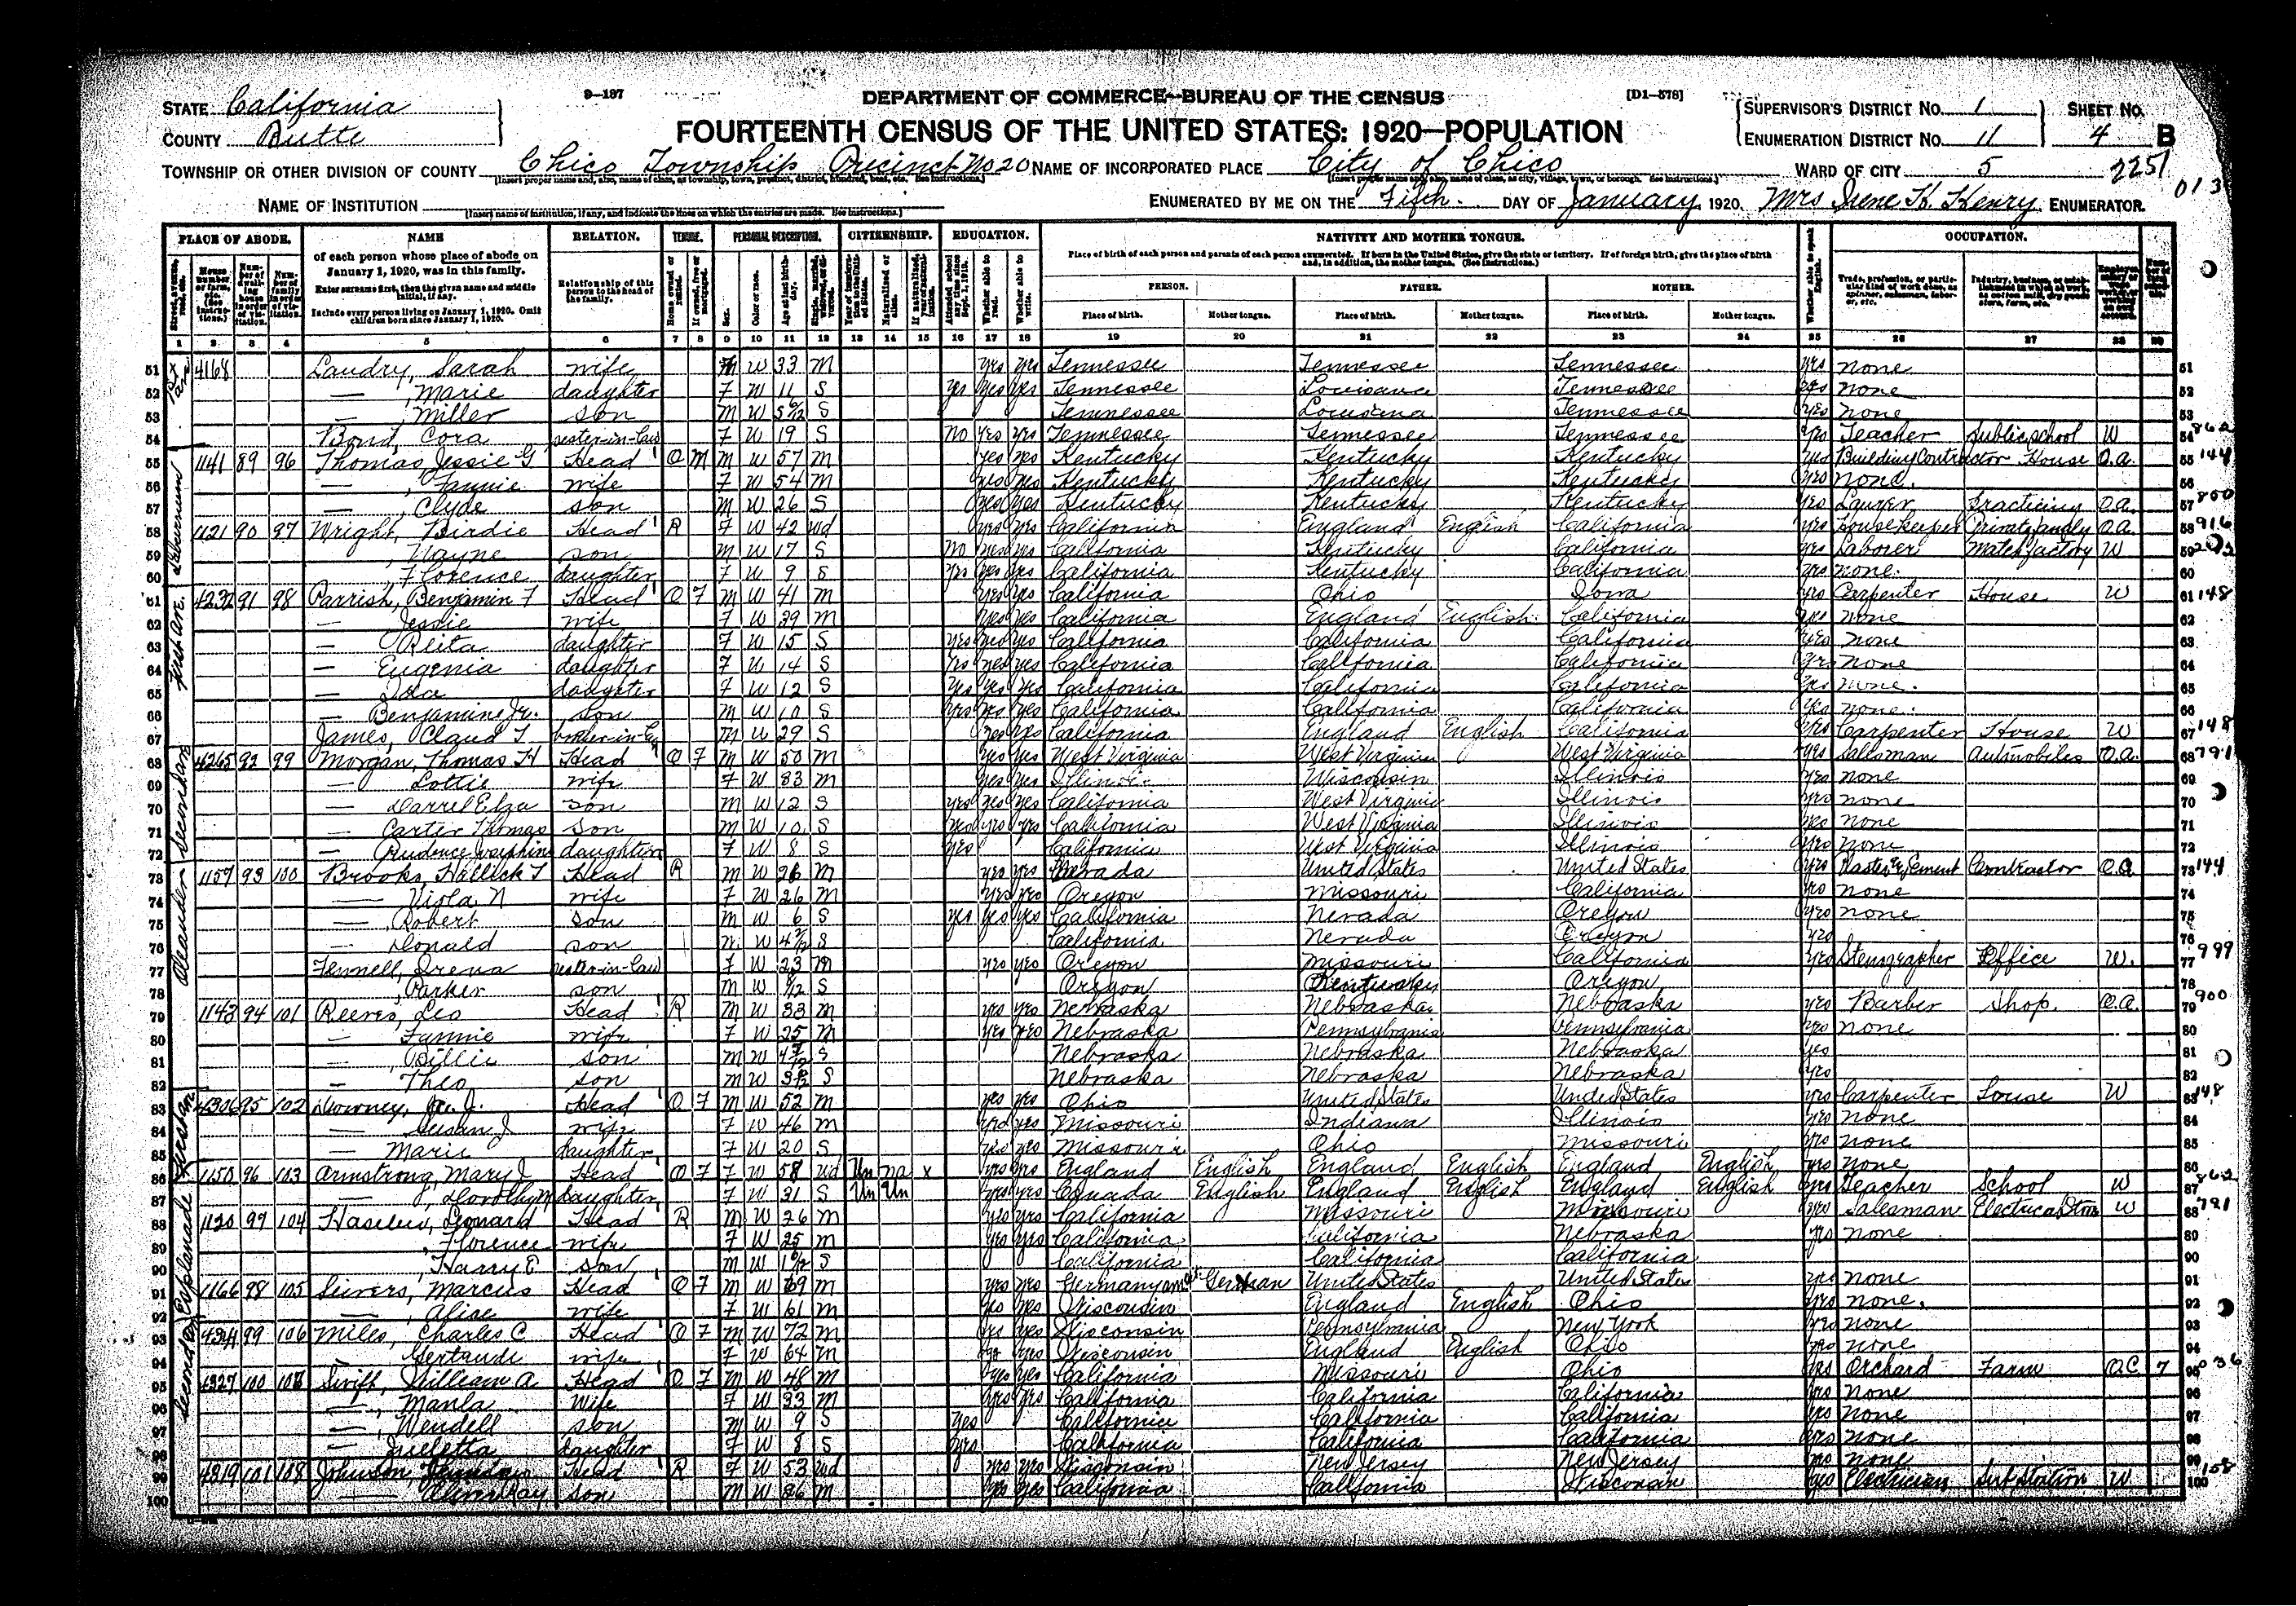 9-137
DEPARTMENT OF COMMERCE—BUREAU OF THE CENSUS
[D1-578]
FOURTEENTH CENSUS OF THE UNITED STATES: 1920—POPULATION
STATE California
COUNTY Butte
SUPERVISOR'S DISTRICT No. 1
ENUMERATION DISTRICT No. 11
SHEET No. 4 B
TOWNSHIP OR OTHER DIVISION OF COUNTY Chico Township Precinct No 20
NAME OF INCORPORATED PLACE City of Chico
WARD OF CITY 5
2251
NAME OF INSTITUTION
ENUMERATED BY ME ON THE Fifth DAY OF January, 1920. Mrs Irene H. Henry, ENUMERATOR.
PLACE OF ABODE. NAME RELATION. TENURE. PERSONAL DESCRIPTION. CITIZENSHIP. EDUCATION. NATIVITY AND MOTHER TONGUE. OCCUPATION.
of each person whose place of abode on January 1, 1920, was in this family.
Enter surname first, then the given name and middle initial, if any.
Include every person living on January 1, 1920. Omit children born since January 1, 1920.
Relationship of this person to the head of the family.
Place of birth of each person and parents of each person enumerated. If born in the United States, give the state or territory. If of foreign birth, give the place of birth and, in addition, the mother tongue. (See Instructions.)
PERSON. FATHER. MOTHER.
Place of birth. Mother tongue. Place of birth. Mother tongue. Place of birth. Mother tongue.
1 2 3 4 5 6 7 8 9 10 11 12 13 14 15 16 17 18 19 20 21 22 23 24 25 26 27 28 29
51 4168 Landry, Sarah wife F W 33 M yes yes Tennessee Tennessee Tennessee yes none 51
52 — , Marie daughter F W 11 S yes yes yes Tennessee Louisiana Tennessee yes none 52
53 — Miller son M W S Tennessee Louisiana Tennessee yes none 53
54 Bond, Cora sister-in-law F W 19 S No yes yes Tennessee Tennessee Tennessee yes Teacher Public school W 54
55 1141 89 96 Thomas, Jessie G Head O M M W 57 M yes yes Kentucky Kentucky Kentucky yes Building Contractor House O.A. 55 144
56 — , Fannie wife F W 54 M yes yes Kentucky Kentucky Kentucky yes none. 56
57 — , Clyde son M W 26 S yes yes Kentucky Kentucky Kentucky yes Lawyer Practicing O.A. 57
58 1121 90 97 Wright, Birdie Head R F W 42 wd yes yes California England English California yes Housekeeper Private family O.A. 58 916
59 , Wayne son M W 17 S No yes yes California Kentucky California yes Laborer Match factory W 59
60 , Florence daughter F W 9 S yes yes yes California Kentucky California yes none. 60
61 4232 91 98 Parrish, Benjamin F Head O F M W 41 M yes yes California Ohio Iowa yes Carpenter House W 61 148
62 — Jessie wife F W 39 M yes yes California England English California yes none 62
63 — Reita daughter F W 15 S yes yes yes California California California yes none 63
64 — Eugenia daughter F W 14 S yes yes yes California California California yes none 64
65 — Ida daughter F W 12 S yes yes yes California California California yes none. 65
66 — Benjamine Jr. son M W 10 S yes yes yes California California California yes none. 66
67 James, Claud T brother-in-law M W 29 S yes yes California England English California yes Carpenter House W 67 148
68 4265 92 99 Morgan, Thomas H Head O F M W 50 M yes yes West Virginia West Virginia West Virginia yes Salesman Automobiles O.A. 68 791
69 — Lottie wife F W 33 M yes yes Illinois Wisconsin Illinois yes none 69
70 — Darrel Elza son M W 12 S yes yes yes California West Virginia Illinois yes none 70
71 — Carter Thomas son M W 10 S yes yes yes California West Virginia Illinois yes none 71
72 — Prudence Josephine daughter F W 8 S yes California West Virginia Illinois yes none 72
73 1157 93 100 Brooks, Hallick T Head R M W 26 M yes yes Nevada United States United States yes Plaster & Cement Contractor O.A. 73 144
74 — Viola N wife F W 26 M yes yes Oregon Missouri California yes none 74
75 — , Robert son M W 6 S yes yes yes California Nevada Oregon yes none 75
76 — Donald son M W S California Nevada Oregon yes 76
77 Fennell, Irena sister-in-law F W 23 M yes yes Oregon Missouri California yes Stenographer Office W. 77 999
78 , Parker son M W S Oregon Kentucky Oregon 78
79 1143 94 101 Reeves, Leo Head R M W 33 M yes yes Nebraska Nebraska Nebraska yes Barber Shop. O.A. 79 900
80 — Fannie wife F W 25 M yes yes Nebraska Pennsylvania Pennsylvania yes none 80
81 — , Billie son M W S Nebraska Nebraska Nebraska yes 81
82 — Theo son M W S Nebraska Nebraska Nebraska yes 82
83 4306 95 102 Downey, J. Head O F M W 52 M yes yes Ohio United States United States yes Carpenter House W 83 148
84 — Susan J wife F W 46 M yes yes Missouri Indiana Illinois yes none 84
85 — Marie daughter F W 20 S yes yes Missouri Ohio Missouri yes none 85
86 1150 96 103 Armstrong, Mary J Head O F F W 58 wd Un na x yes yes England English England English England English yes none 86
87 — , Dorothy M daughter F W 31 S Un Un yes yes Canada English England English England English yes Teacher School W 87
88 1120 97 104 Leonard Head R M W 26 M yes yes California Missouri Missouri yes Salesman Electrical Store W 88 791
89 , Florence wife F W 25 M yes yes California California Nebraska yes none 89
90 , Harry E son M W S California California California 90
91 1166 98 105 Sievers, Marcus Head O F M W 69 M yes yes Germany German United States United States yes none 91
92 — , Alise wife F W 61 M yes yes Wisconsin England English Ohio yes none. 92
93 4341 99 106 Miles, Charles C Head O F M W 72 M yes yes Wisconsin Pennsylvania New York yes none 93
94 — Gertrude wife F W 64 M yes yes Wisconsin England English Ohio yes none 94
95 4327 100 107 Swift, William A. Head O F M W 48 M yes yes California Missouri Ohio yes Orchard Farm O.A. 7 95
96 — , Manla Wife F W 33 M yes yes California California California yes none 96
97 — , Wendell son M W 9 S yes California California California yes none 97
98 — Jueletta daughter F W 8 S yes California California California yes none 98
99 4319 101 108 Johnson, Head R F W 53 wd yes yes Wisconsin New Jersey New Jersey yes none 99
100 — Ray son M W 26 M yes yes California California Wisconsin yes Electrician Sub Station W 100 158
First Ave.
Sheridan
Esplanade
Second Ave